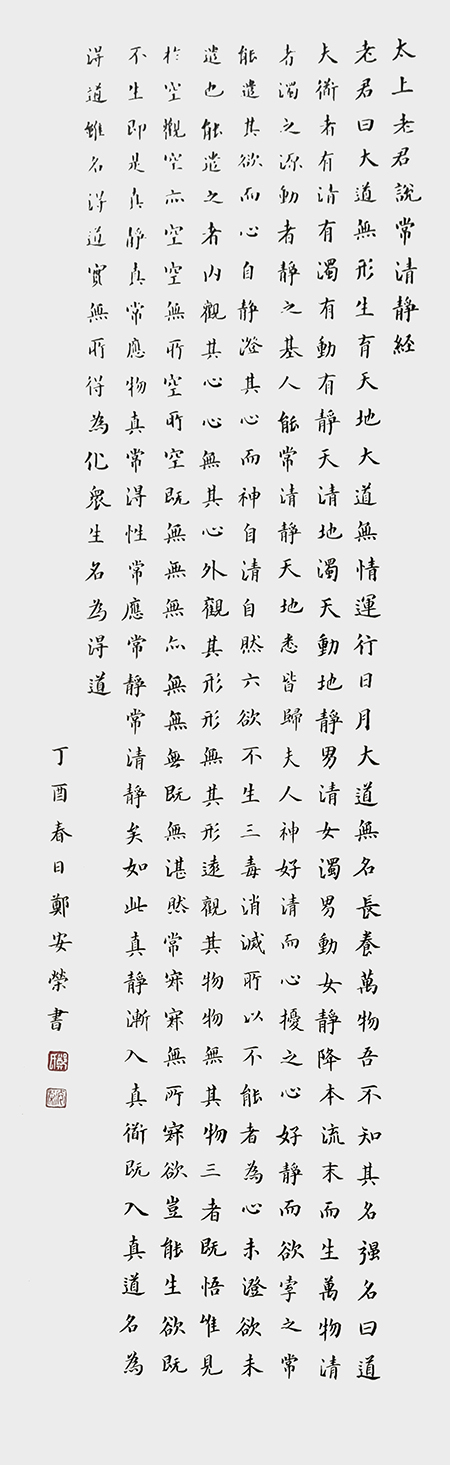 太上老君說常清靜經
老君曰大道無形生育天地大道無情運行日月大道無名長養萬物吾不知其名强名曰道
夫衜者有清有濁有動有靜天清地濁天動地靜男清女濁男動女靜降本流末而生萬物清
者濁之源動者靜之基人能常清靜天地悉皆歸夫人神好清而心擾之心好靜而欲牽之常
能遣其欲而心自靜澄其心而神自清自然六欲不生三毒消滅所以不能者為心未澄欲未
遣也能遣之者內觀其心心無其心外觀其形形無其形遠觀其物物無其物三者既悟唯見
於空觀空亦空空無所空所空既無無無亦無無無既無湛然常寂寂無所寂欲豈能生欲既
不生即是真靜真常應物真常得性常應常靜常清靜矣如此真靜漸入真衜既入真道名為
得道雖名得道實無所得為化眾生名為得道
丁酉春日鄭安榮書